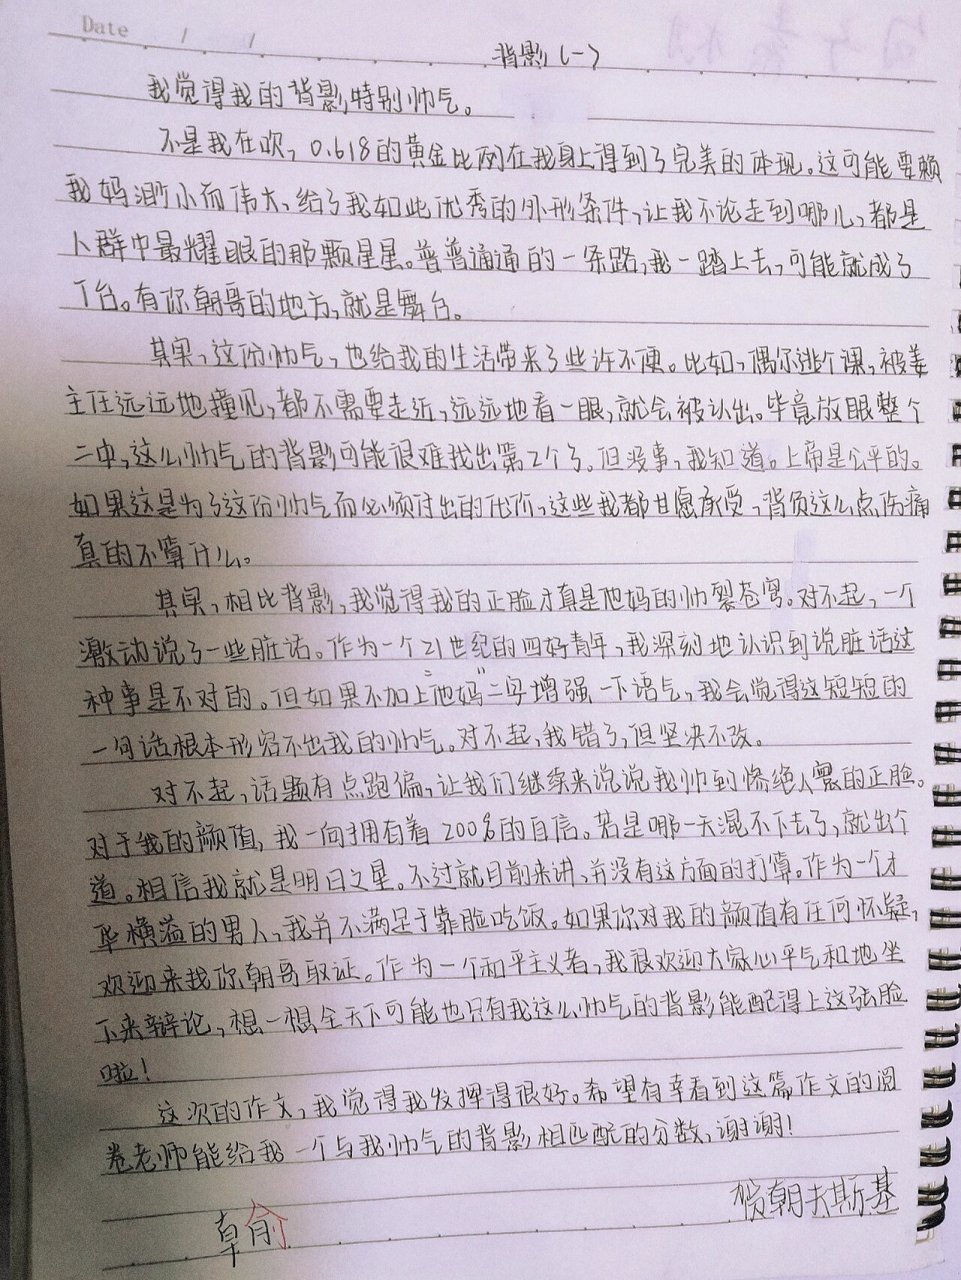 Date / /
背影(一)
我觉得我的背影特别帅气。
不是我在吹,0.618的黄金比例在我身上得到了完美的体现。这可能要赖
我妈渺小而伟大、给了我如此优秀的外形条件,让我不论走到哪儿,都是
人群中最耀眼的那颗星星。普普通通的一条路,我一踏上去,可能就成了
T台。有你朝哥的地方,就是舞台。
其实,这份帅气,也给我的生活带来了些许不便。比如,偶尔逃个课,被姜
主任远远地撞见,都不需要走近,远远地看一眼,就会被认出。毕竟放眼整个
二中,这么帅气的背影可能很难找出第2个了。但没事,我知道。上帝是公平的。
如果这是为了这份帅气而必须付出的代价,这些我都甘愿承受,背负这么点伤痛
真的不算什么。
其实,相比背影,我觉得我的正脸才真是他妈的帅裂苍穹。对不起,一个
激动说了一些脏话。作为一个21世纪的四好青年,我深刻地认识到说脏话这
种事是不对的。但如果不加上“他妈”二字增强一下语气,我会觉得这短短的
一句话根本形容不出我的帅气。对不起,我错了,但坚决不改。
对不起,话题有点跑偏,让我们继续来说说我帅到惨绝人寰的正脸。
对于我的颜值,我一向拥有着200%的自信。若是哪一天混不下去了,就出个
道。相信我就是明日之星。不过就目前来讲,并没有这方面的打算。作为一个才
华横溢的男人,我并不满足于靠脸吃饭。如果你对我的颜值有任何怀疑,
欢迎来找你朝哥取证。作为一个和平主义者,我很欢迎大家心平气和地坐
下来辩论,想一想全天下可能也只有我这么帅气的背影能配得上这张脸
啦!
这次的作文,我觉得我发挥得很好。希望有幸看到这篇作文的阅
卷老师能给我一个与我帅气的背影相匹配的分数,谢谢!
朝夫斯基